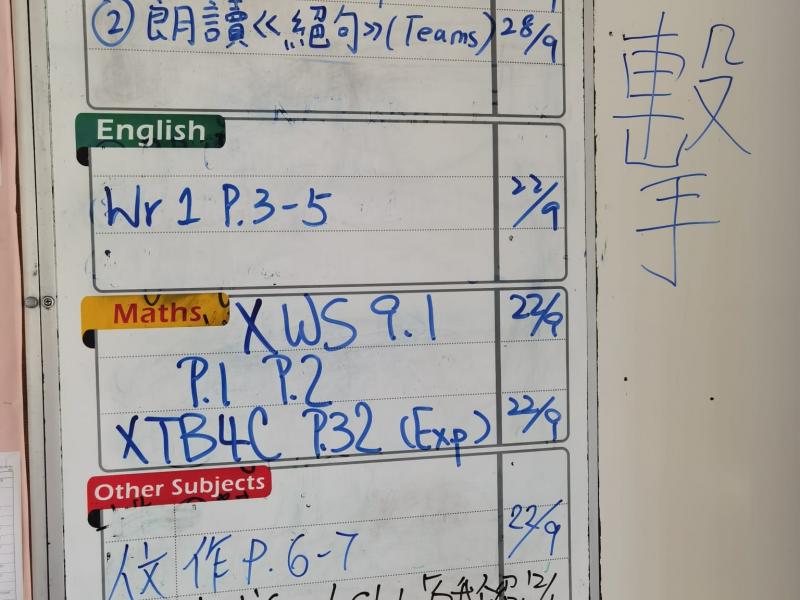 ② 朗讀《絕句》(Teams) 28/9
English
Wr 1 P.3-5 22/9
Maths
X WS 9.1 22/9
P.1 P.2
X TB4C P.32 (Exp) 22/9
Other Subjects
人文 作 P.6-7 22/9
擊